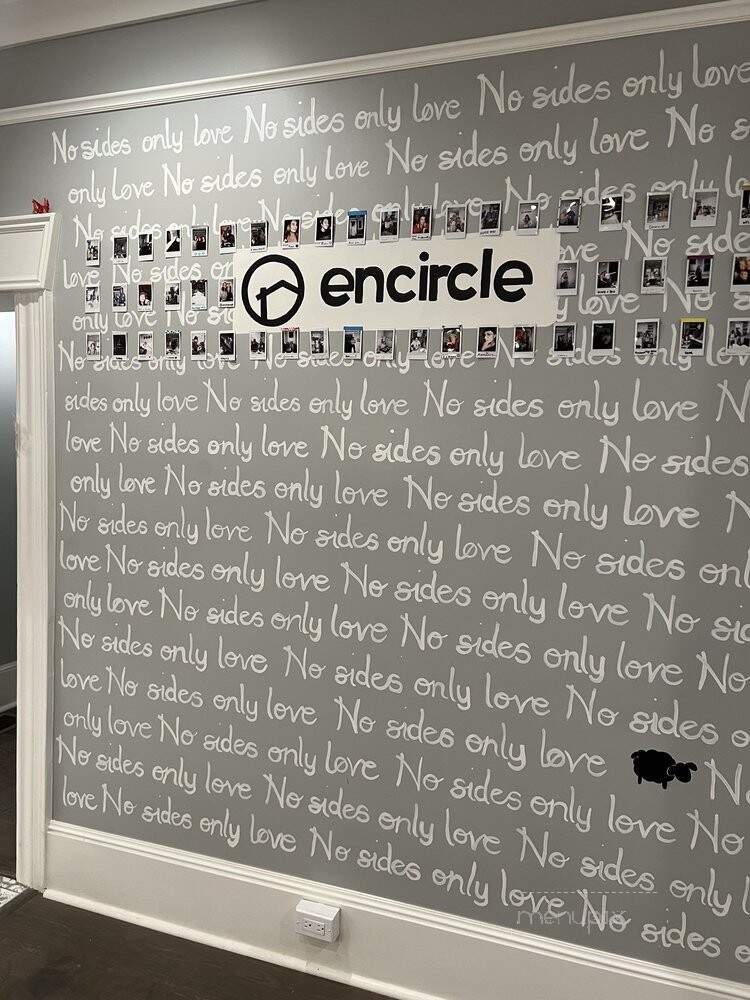 No sides only love No sides only love No sides only love
only love No sides only love No sides only love No s
No sides only love No sides only love No sides only lov
love No sides
encircle
ve No side
only lov
No sides only love No sides only love No sides only lov
sides only love No sides only love No sides only love N
love No sides only love No sides only love No sides
only love No sides only love No sides only love N
No sides only love No sides only love No sides onl
love No sides only love No sides only love No si
only love No sides only love No sides only love No
No sides only love No sides only love No sides o
love No sides only love No sides only love No
only love No sides only love No sides only love No
No sides only love No sides only love No sides only l
love No sides only love No sides only love No sides o
menupix